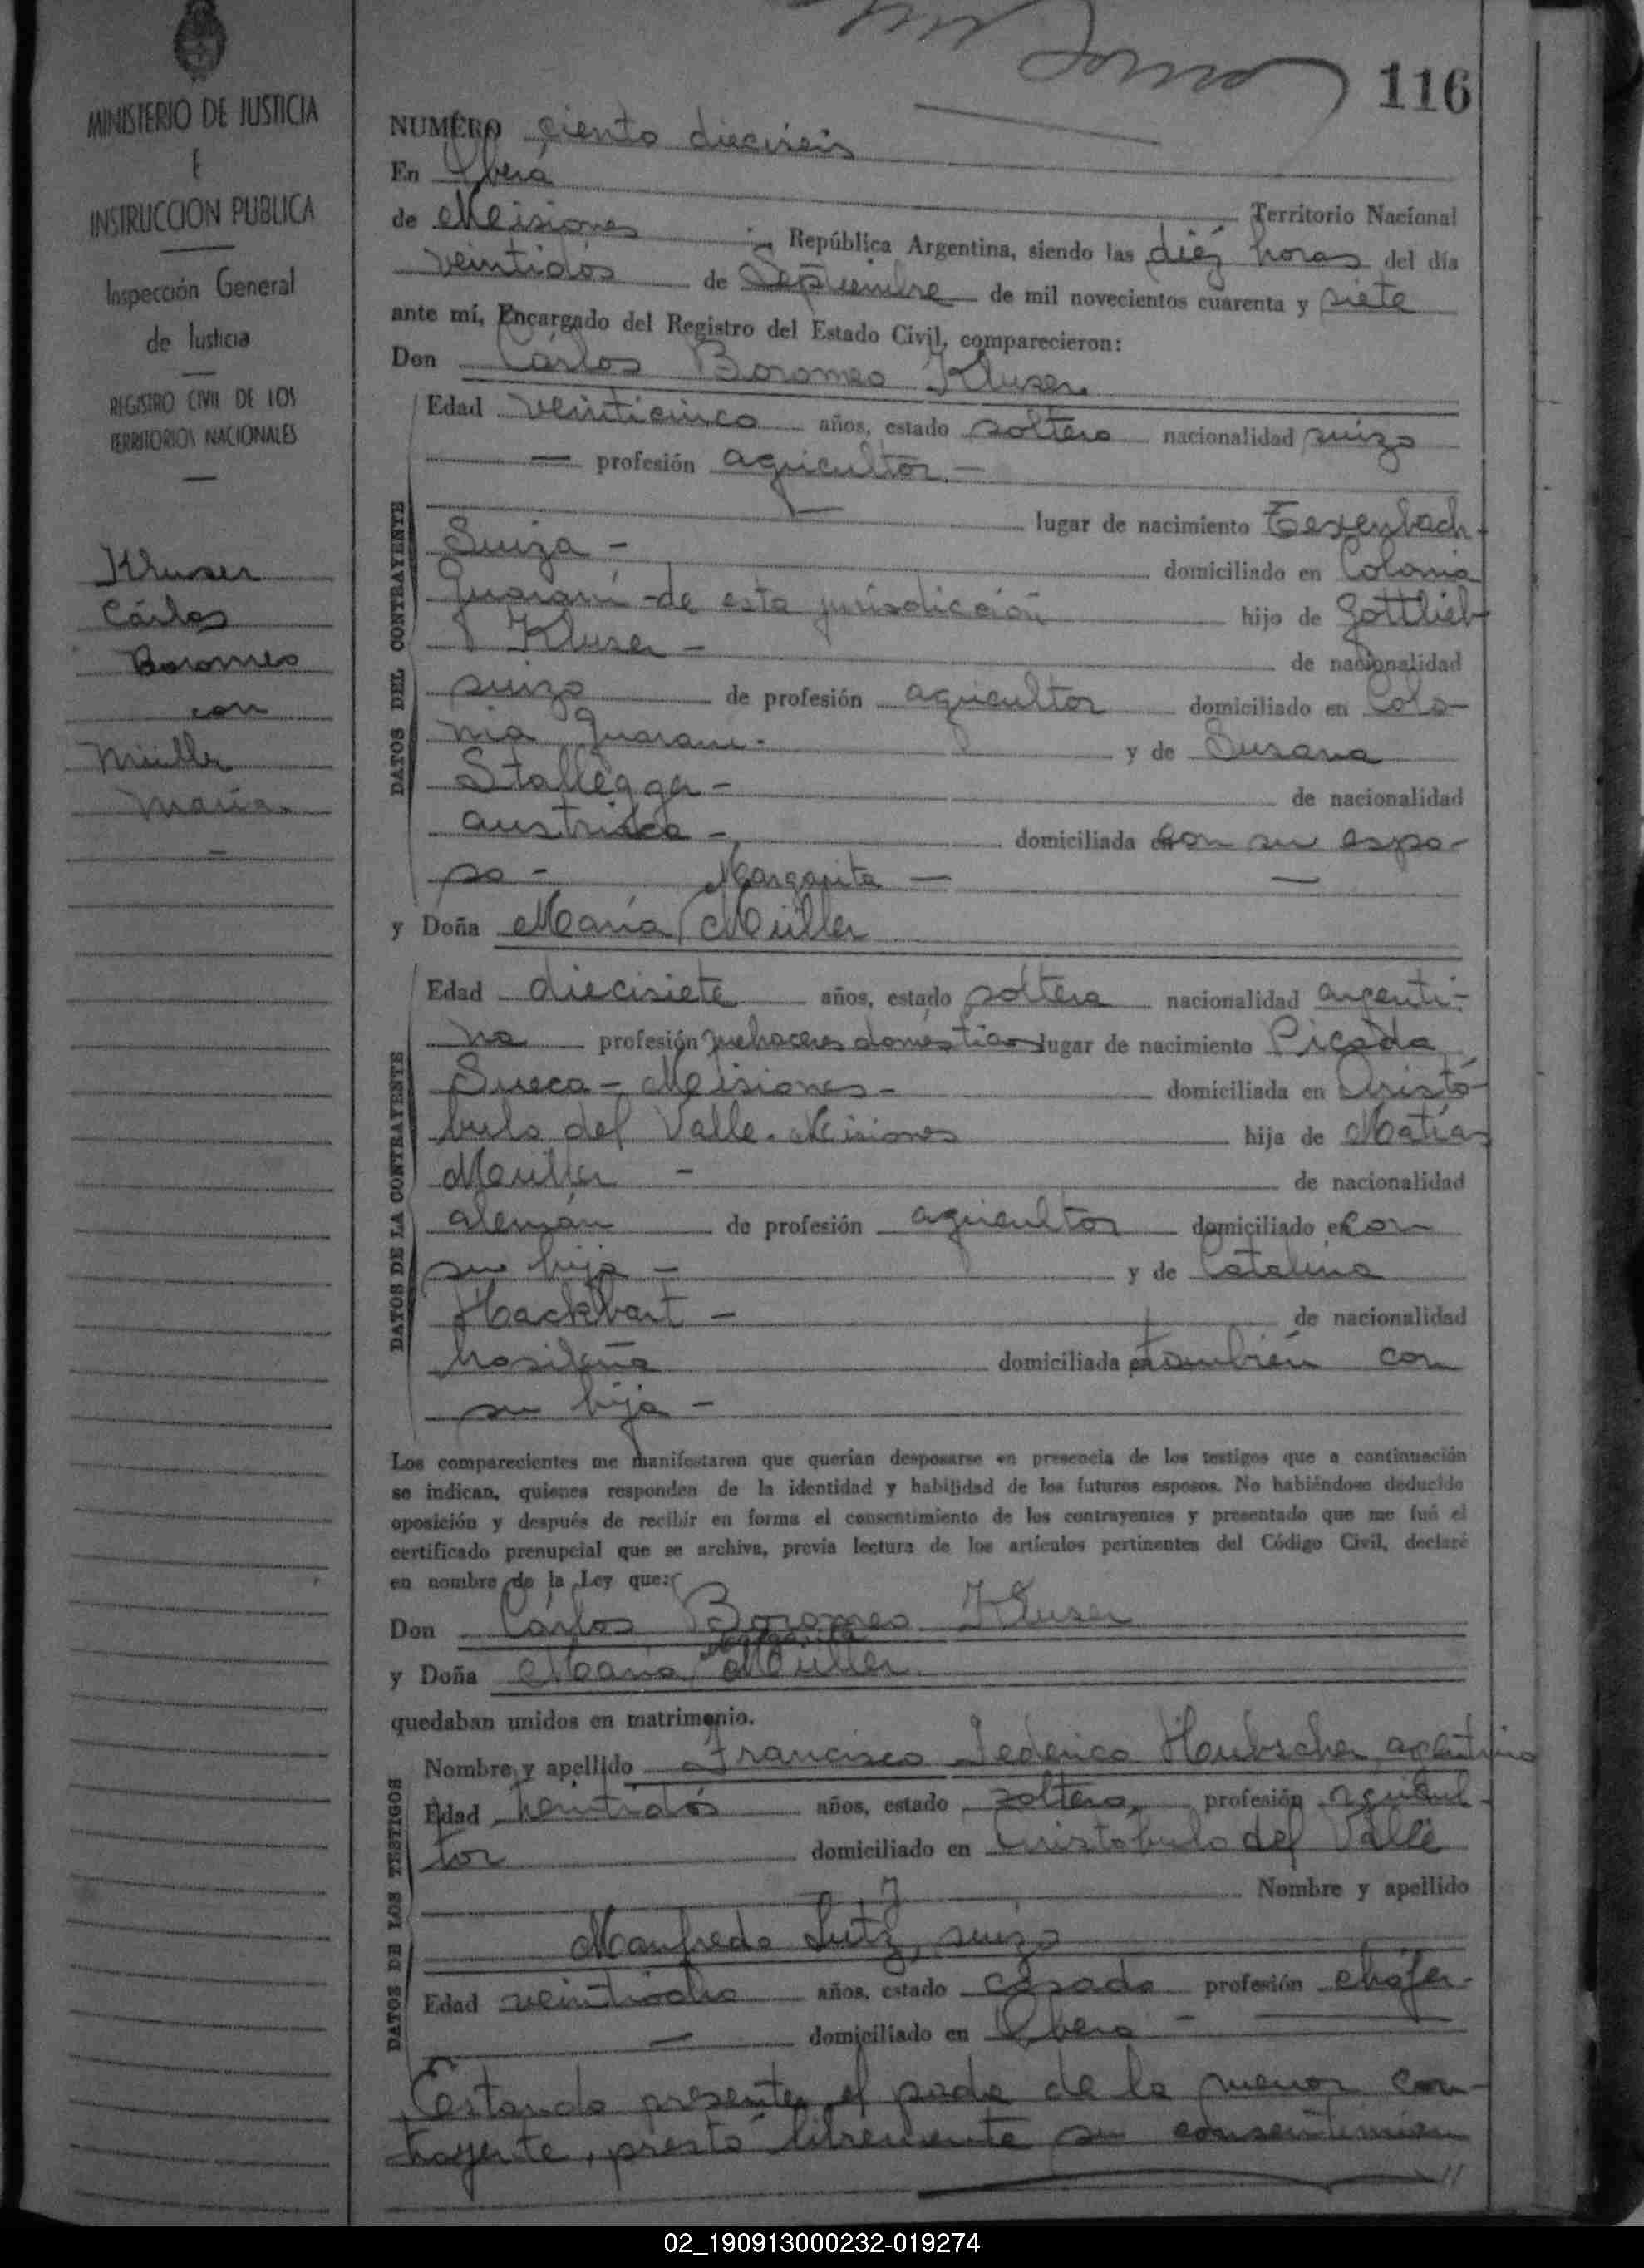 116
MINISTERIO DE JUSTICIA
E
INSTRUCCION PUBLICA
Inspección General
de Justicia
REGISTRO CIVIL DE LOS
TERRITORIOS NACIONALES
Kluser
Cárlos
Boromeo
con
Müller
María
NUMERO ciento dieciseis
En Oberá Territorio Nacional
de Misiones República Argentina, siendo las diez horas del día
veintidós de Septiembre de mil novecientos cuarenta y siete
ante mí, Encargado del Registro del Estado Civil, comparecieron:
Don Cárlos Boromeo Kluser
DATOS DEL CONTRAYENTE
Edad veinticinco años, estado soltero nacionalidad suizo
— profesión agricultor —
lugar de nacimiento Eexenbach-
Suiza - domiciliado en Colonia
Guaraní de esta jurisdicción hijo de Gottlieb
Kluser - de nacionalidad
suizo de profesión agricultor domiciliado en Colo-
nia Guaraní - y de Susana
Stallegger - de nacionalidad
austriaca - domiciliada con su espo-
so - Margarita — —
y Doña María Müller
DATOS DE LA CONTRAYENTE
Edad diecisiete años, estado soltera nacionalidad argenti-
na profesión quehaceres domésticos lugar de nacimiento Picada
Sueca - Misiones - domiciliada en Aristó-
bulo del Valle. Misiones hija de Matías
Müller - de nacionalidad
alemán de profesión agricultor domiciliado en con
su hija - y de Catalina
Hackbart - de nacionalidad
brasileña domiciliada en también con
su hija -
Los comparecientes me manifestaron que querían desposarse en presencia de los testigos que a continuación
se indican, quienes responden de la identidad y habilidad de los futuros esposos. No habiéndose deducido
oposición y después de recibir en forma el consentimiento de los contrayentes y presentado que me fué el
certificado prenupcial que se archiva, previa lectura de los artículos pertinentes del Código Civil, declaré
en nombre de la Ley que:
Don Cárlos Boromeo Kluser
Margarita
y Doña María Müller
quedaban unidos en matrimonio.
DATOS DE LOS TESTIGOS
Nombre y apellido Francisco Federico Hubscher, argentino
Edad veintidós años, estado soltero, profesión agricul-
tor domiciliado en Aristobulo del Valle
Nombre y apellido
Manfredo Lutz, suizo
Edad veintiocho años, estado casado profesión chofer-
— domiciliado en Oberá -
Estando presente el padre de la menor con-
trayente, prestó libremente su consentimien
//
02_190913000232-019274